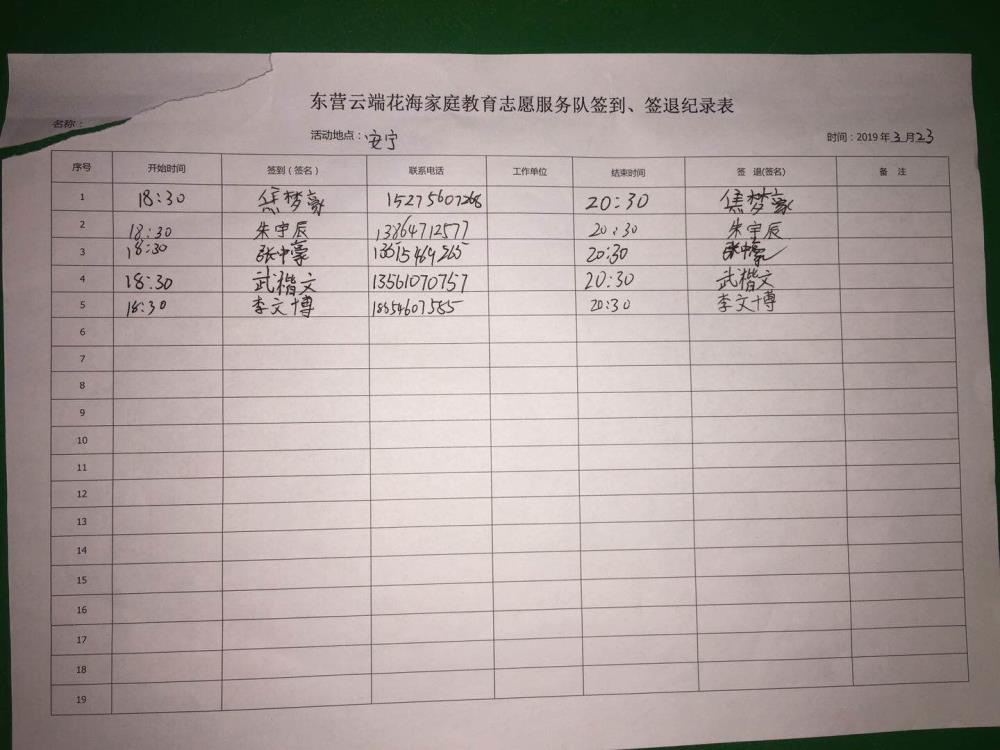 东营云端花海家庭教育志愿服务队签到、签退纪录表
名称：
活动地点：安宁
时间：2019年3月23
序号 开始时间 签到（签名） 联系电话 工作单位 结束时间 签 退(签名) 备 注
1 18:30 焦梦豪 15275607268 20:30 焦梦豪
2 18:30 朱宇辰 13864712577 20:30 朱宇辰
3 18:30 张中豪 13515464265 20:30 张中豪
4 18:30 武楷文 13561070757 20:30 武楷文
5 18:30 李文博 18554607585 20:30 李文博
6
7
8
9
10
11
12
13
14
15
16
17
18
19